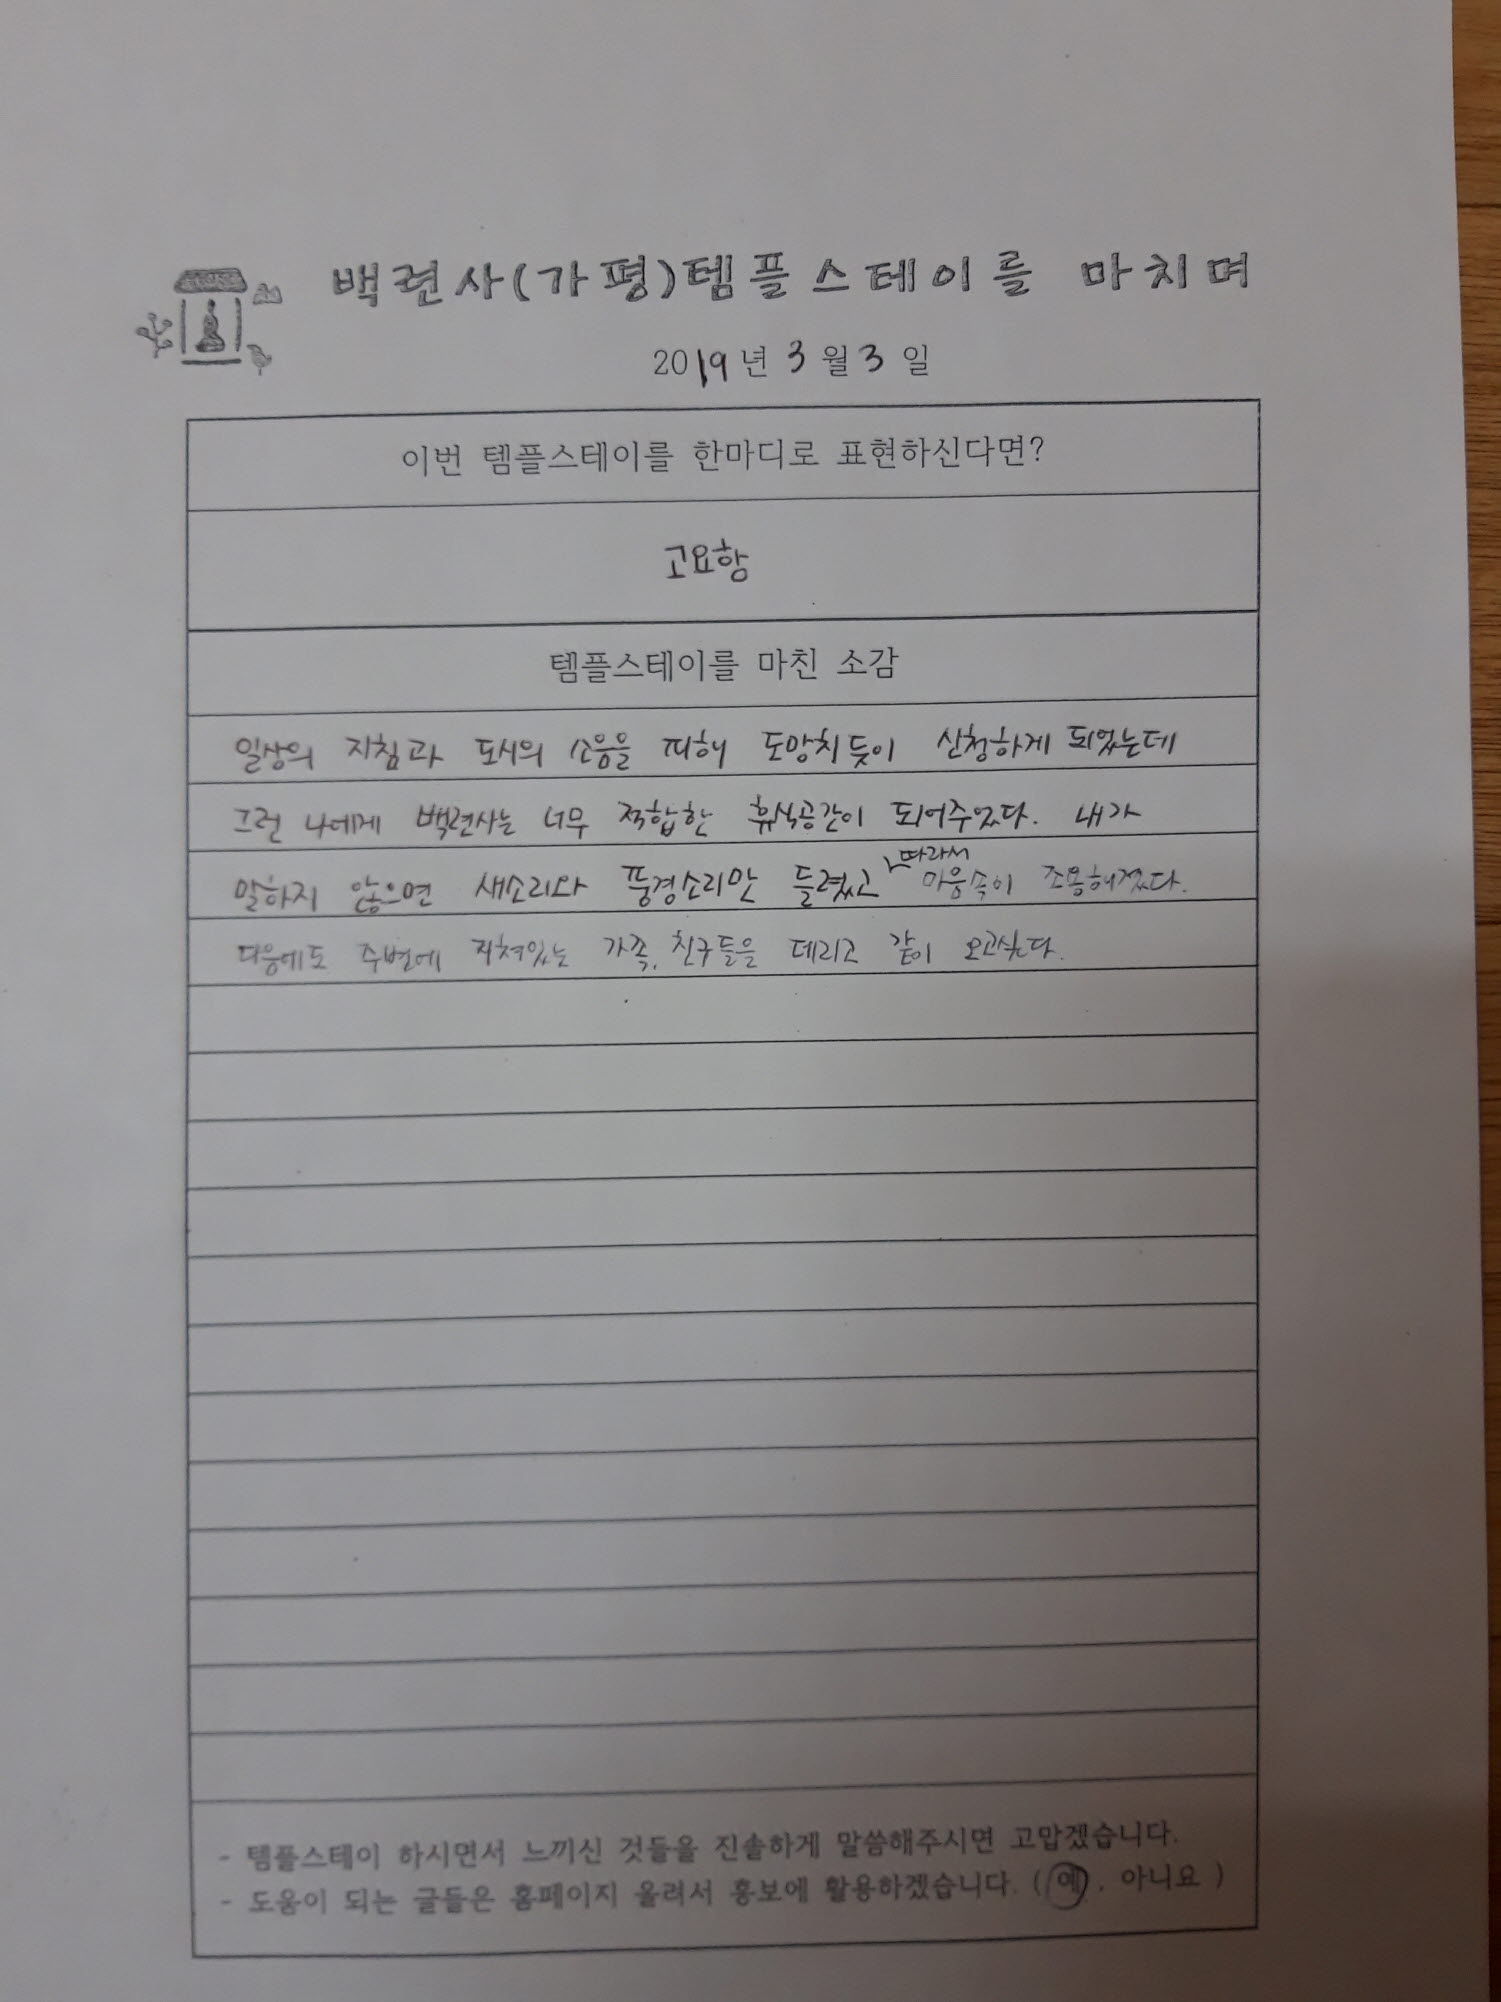 백련사(가평)템플스테이를 마치며
2019년 3월 3일
이번 템플스테이를 한마디로 표현하신다면?
고요함
템플스테이를 마친 소감
일상의 지침과 도시의 소음을 피해 도망치듯이 신청하게 되었는데
그런 나에게 백련사는 너무 적합한 휴식공간이 되어주었다. 내가
말하지 않으면 새소리와 풍경소리만 들렸고 따라서 마음속이 조용해졌다.
다음에도 주변에 지쳐있는 가족, 친구들을 데리고 같이 오고싶다.
- 템플스테이 하시면서 느끼신 것들을 진솔하게 말씀해주시면 고맙겠습니다.
- 도움이 되는 글들은 홈페이지 올려서 홍보에 활용하겠습니다. ( 예 , 아니요 )